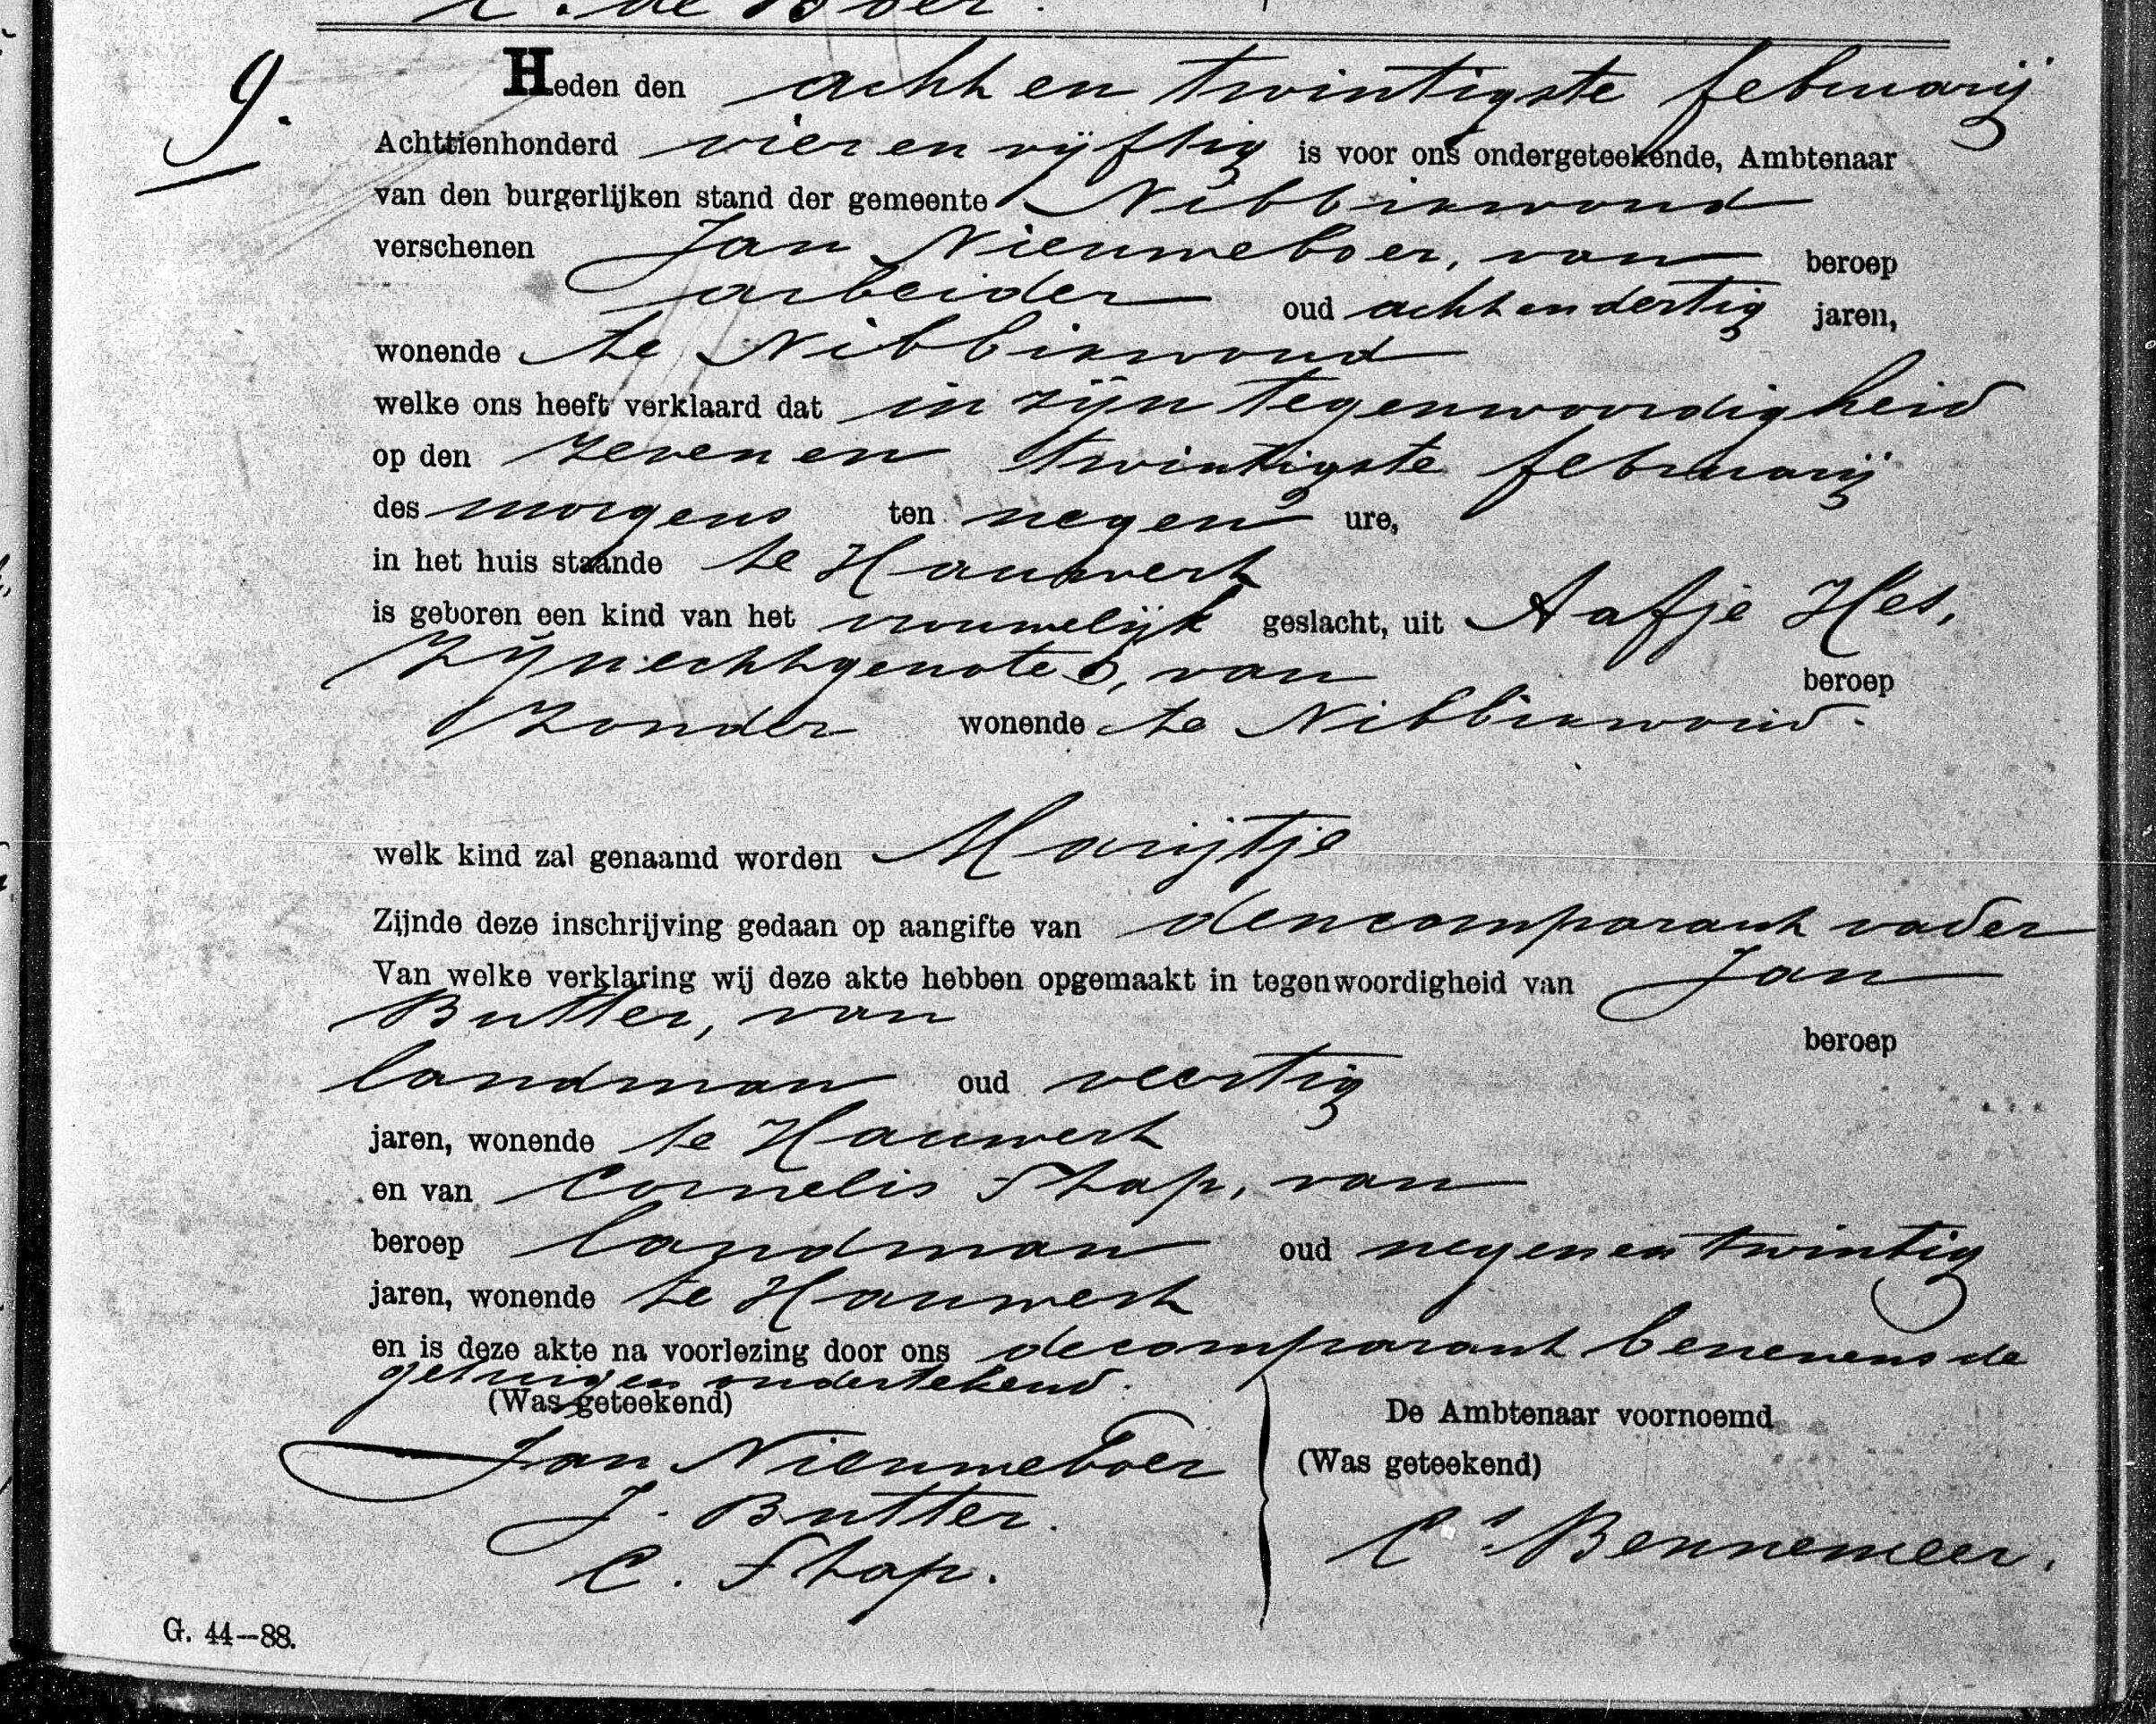 C. de Boer.
9.
Heden den acht en twintigste februarij
Achttienhonderd vier en vijftig is voor ons ondergeteekende, Ambtenaar
van den burgerlijken stand der gemeente Nibbixwoud
verschenen Jan Nieuweboer, van beroep
arbeider oud acht en dertig jaren,
wonende te Nibbixwoud
welke ons heeft verklaard dat in zijn tegenwoordigheid
op den zeven en twintigste februarij
des morgens ten negen ure,
in het huis staande te Hauwert
is geboren een kind van het vrouwelijk geslacht, uit Aafje Hes,
zijn echtgenote, van beroep
zonder wonende te Nibbixwoud.
welk kind zal genaamd worden Marijtje
Zijnde deze inschrijving gedaan op aangifte van den comparant vader
Van welke verklaring wij deze akte hebben opgemaakt in tegenwoordigheid van Jan
Butter, van beroep
landman oud veertig
jaren, wonende te Hauwert
en van Cornelis Stap, van
beroep landman oud negen en twintig
jaren, wonende te Hauwert
en is deze akte na voorlezing door ons de comparant benevens de
getuigen ondertekend.
(Was geteekend) De Ambtenaar voornoemd
Jan Nieuweboer (Was geteekend)
J. Butter.
C. Stap. Cs. Bennemeer.
G. 44—88.